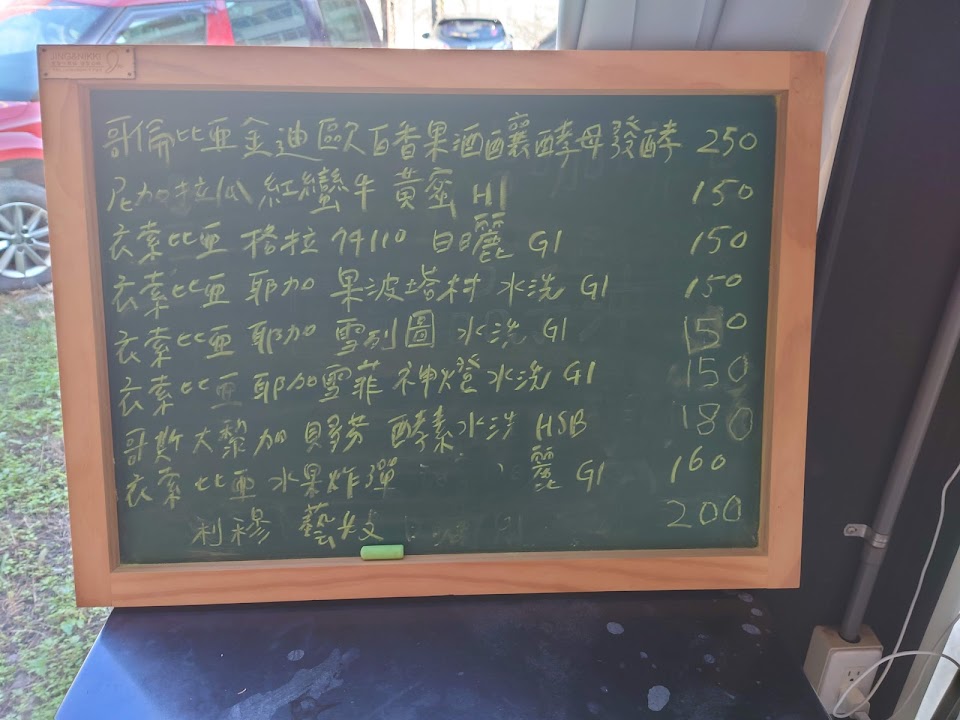 JINGANIKKI
哥倫比亞金迪歐百香果酒釀酵母發酵 250
尼加拉瓜 紅蠻牛 黃蜜 H1 150
衣索比亞 格拉 74110 日曬 G1 150
衣索比亞 耶加 果波塔村 水洗 G1 150
衣索比亞 耶加 雪列圖 水洗 G1 150
衣索比亞 耶加雪菲 神燈水洗 G1 150
哥斯大黎加 貝勞 酵素水洗 HSB 180
衣索比亞 水果炸彈 麗 G1 160
利穆 藝妓 200